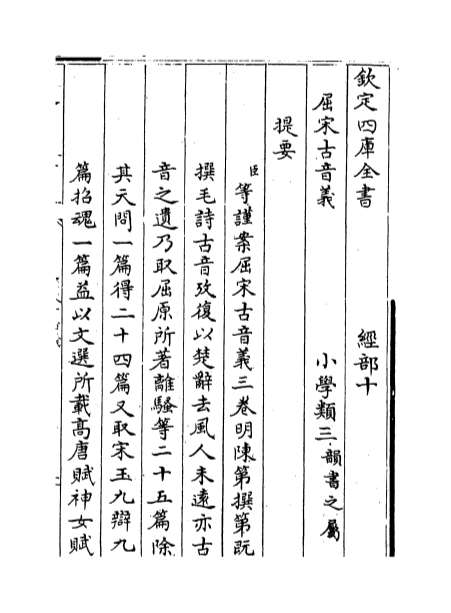 欽定四庫全書 經部十
屈宋古音義 小學類三韻書之屬
提要
臣等謹案屈宋古音義三卷明陳第撰第既
撰毛詩古音攷復以楚辭去風人未遠亦古
音之遺乃取屈原所著離騷等二十五篇除
其天問一篇得二十四篇又取宋玉九辯九
篇招魂一篇益以文選所載高唐賦神女賦